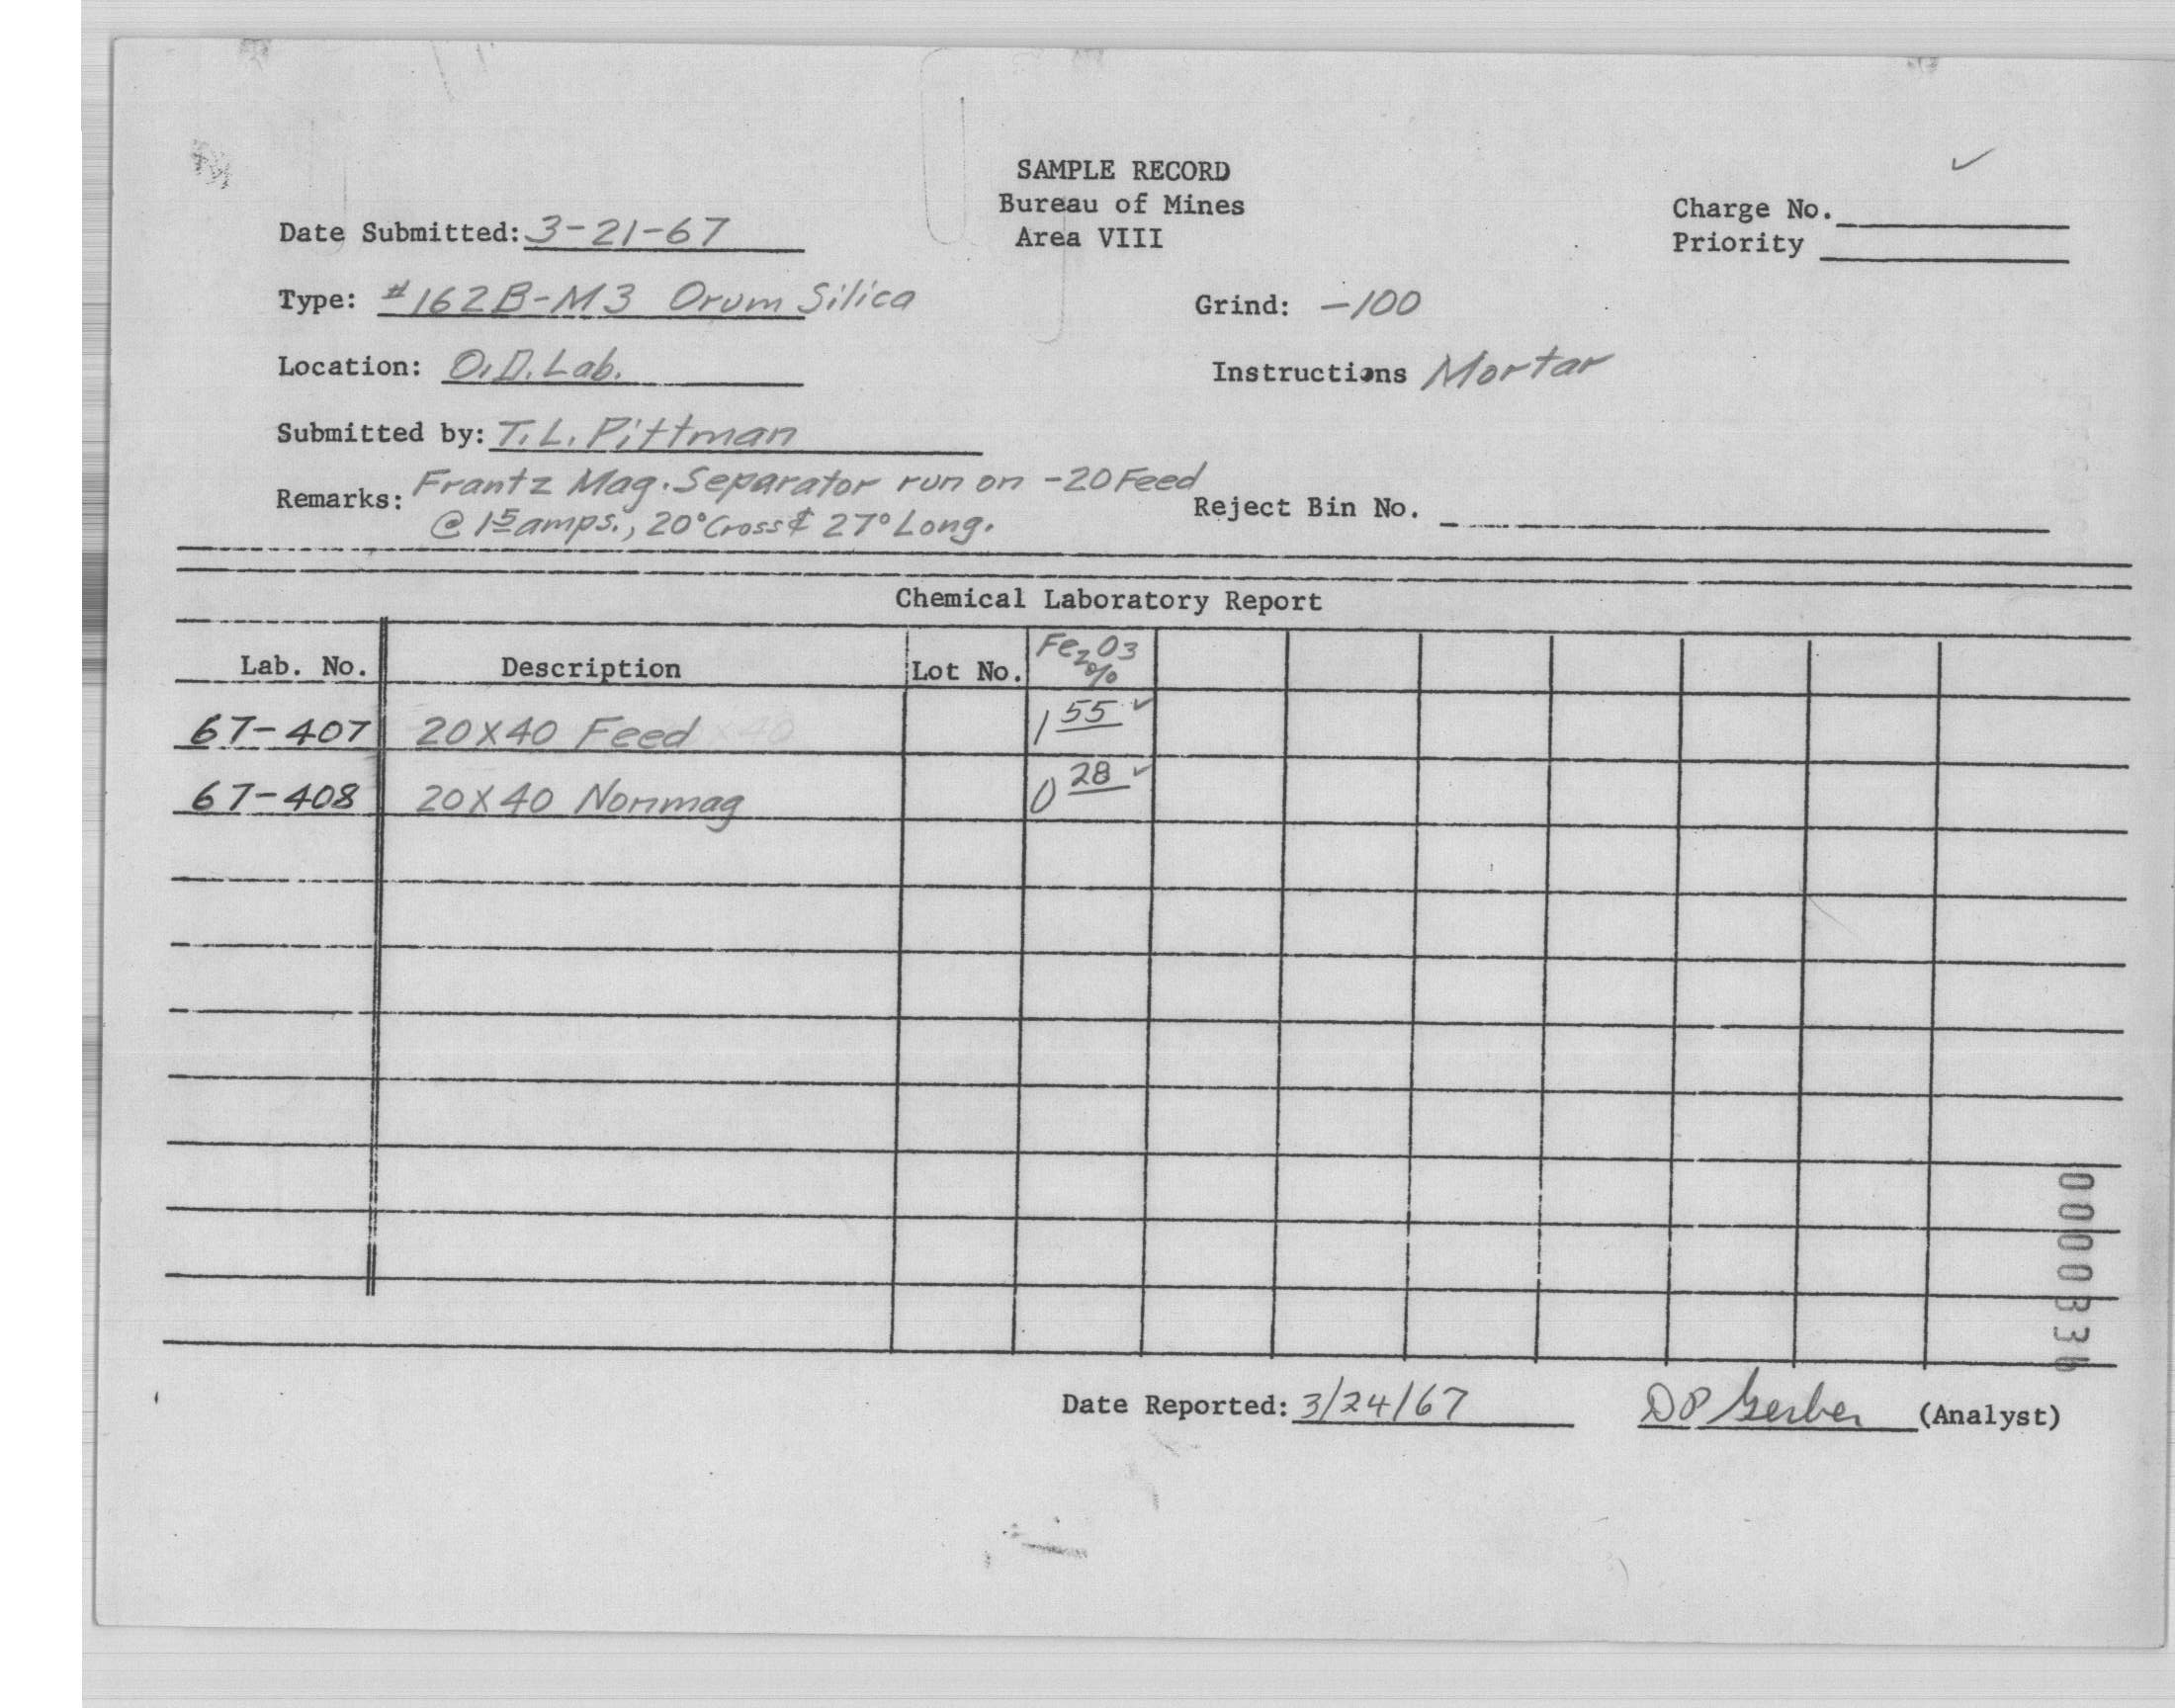 SAMPLE RECORD
Bureau of Mines
Area VIII
Charge No.
Priority
Date Submitted: 3-21-67
Type: #162B-M3 Orum Silica
Grind: -100
Location: O.D. Lab.
Instructions Mortar
Submitted by: T.L. Pittman
Remarks: Frantz Mag. Separator run on -20 Feed
@ 1⁵ amps., 20° Cross & 27° Long.
Reject Bin No.
Chemical Laboratory Report
Lab. No. Description Lot No. Fe2O3 %
67-407 20X40 Feed 1 55 ✓
67-408 20X40 Nonmag 0 28 ✓
Date Reported: 3/24/67 DP Gerber (Analyst)